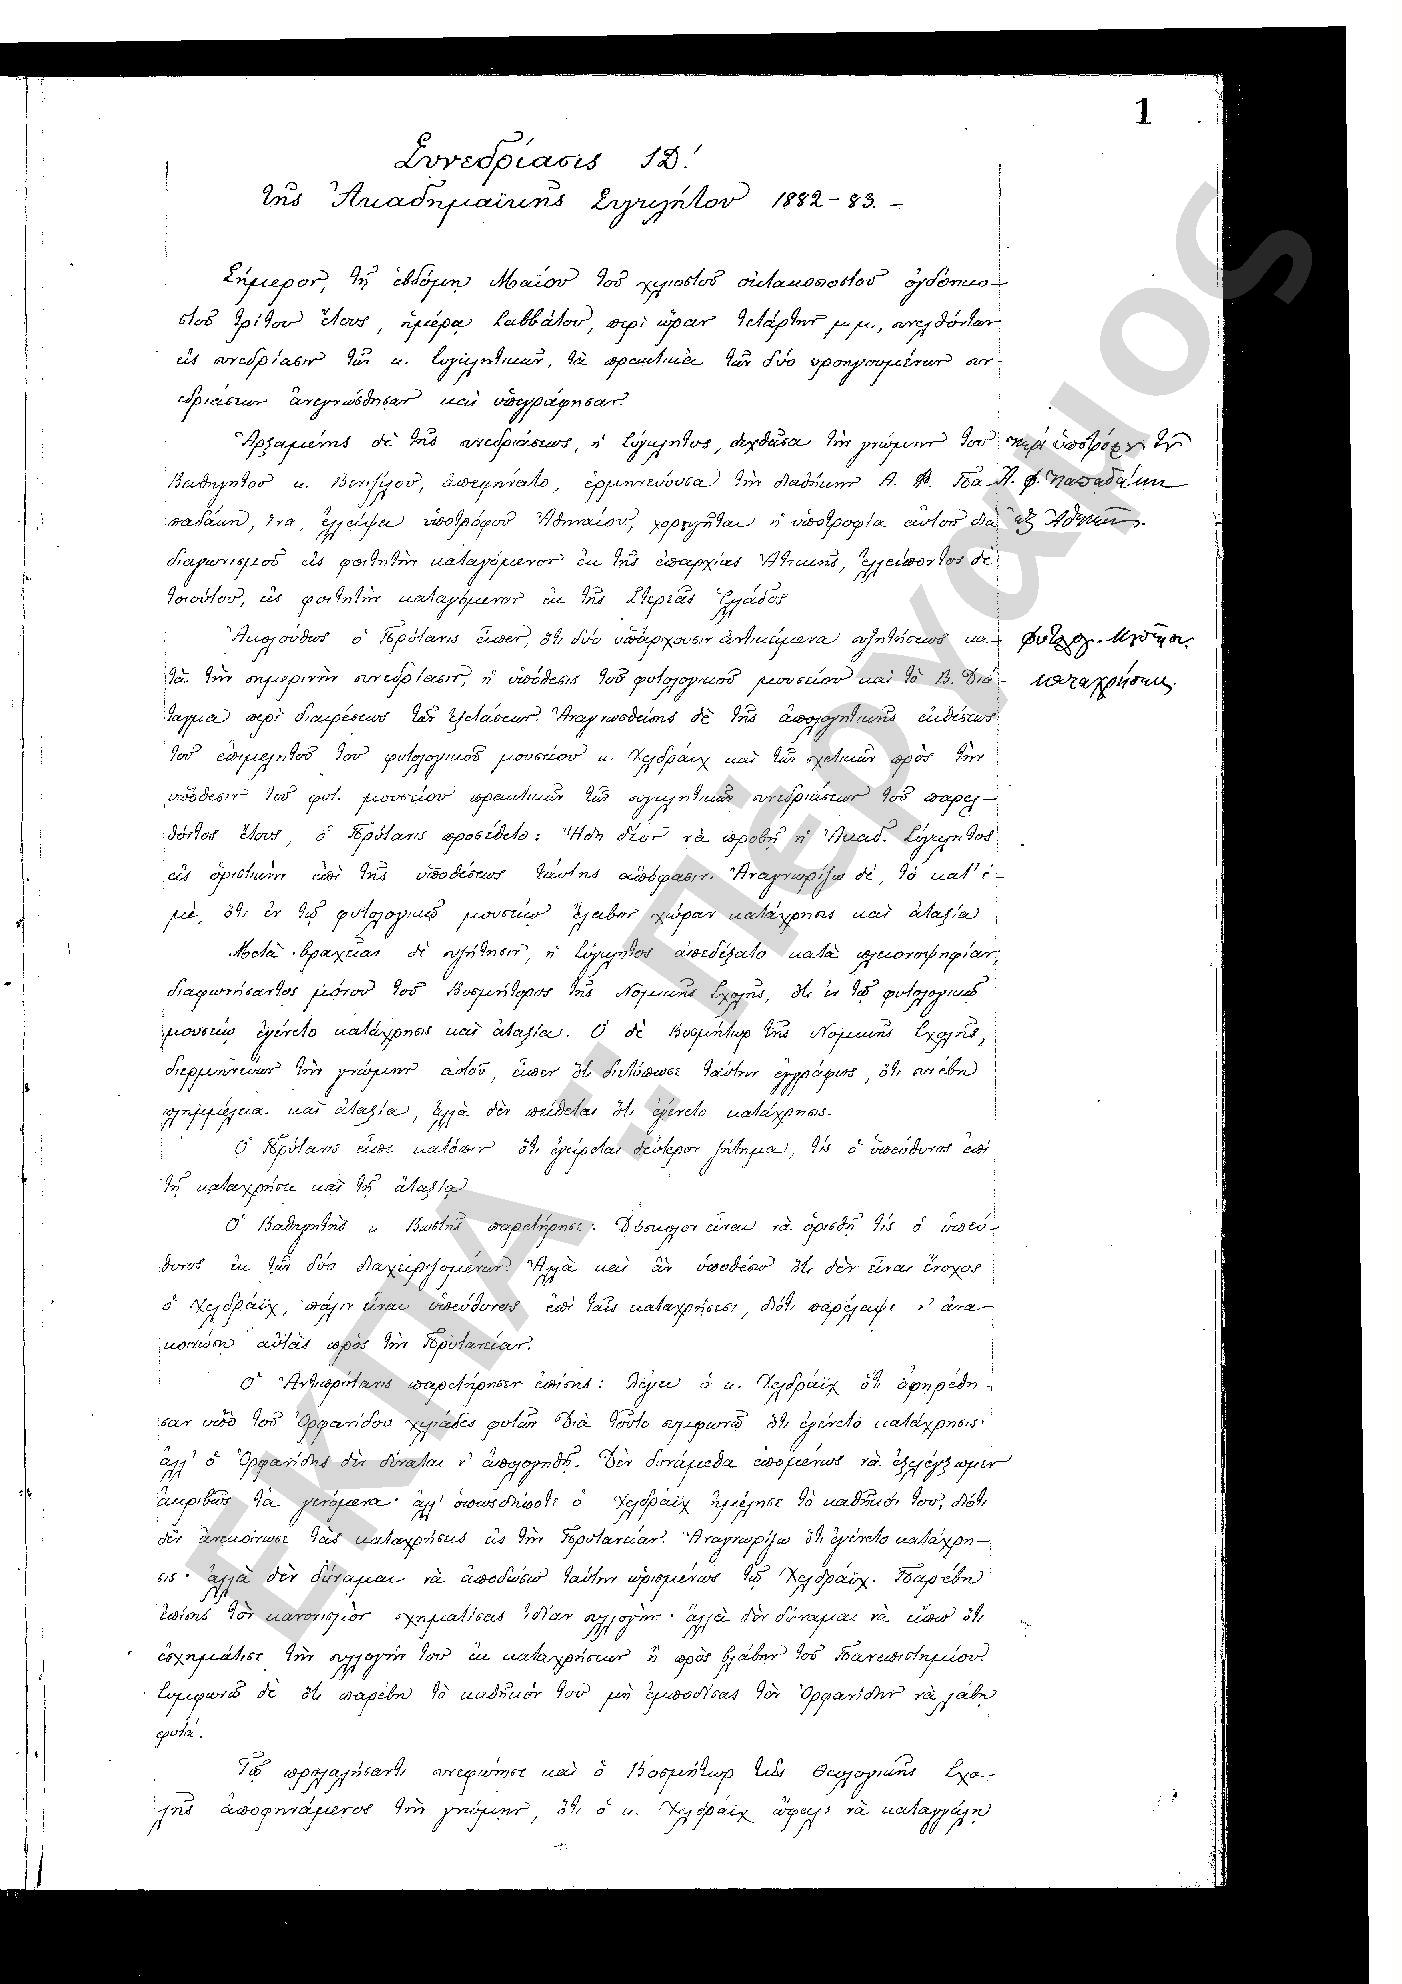 1
Συνεδρίασις ΙΔ'.
τῆς Ἀκαδημαϊκῆς Συγκλήτου 1882-83.-
Σήμερον, τῇ ἑβδόμῃ Μαΐου τοῦ χιλιοστοῦ ὀκτακοσιοστοῦ ὀγδοηκο-
στοῦ τρίτου ἔτους, ἡμέρᾳ Σαββάτου, περὶ ὥραν τετάρτην μ.μ., συνελθόντων
εἰς συνεδρίασιν τῶν κ. Συγκλητικῶν, τὰ πρακτικὰ τῶν δύο προηγουμένων συν-
εδριάσεων ἀνεγνώσθησαν καὶ ὑπεγράφησαν.
Ἀρξαμένης δὲ τῆς συνεδριάσεως, ἡ Σύγκλητος, δεχθεῖσα τὴν γνώμην τοῦ
Καθηγητοῦ κ. Βενιζέλου, ἀπεφήνατο, ἑρμηνεύουσα τὴν διαθήκην Α. Φ. Πα
παδάκη, ἵνα, ἐλλείψει ὑποτρόφου Ἀθηναίου, χορηγῆται ἡ ὑποτροφία αὐτοῦ διὰ
διαγωνισμοῦ εἰς φοιτητὴν καταγόμενον ἐκ τῆς ἐπαρχίας Ἀττικῆς, ἐλλείποντος δὲ
τοιούτου, εἰς φοιτητὴν καταγόμενον ἐκ τῆς Στερεᾶς Ἑλλάδος
Περὶ ὑποτρόφων τῆς
Α. Φ. Παπαδάκη
ἐξ Ἀθηνῶν.
Ἀκολούθως ὁ Πρύτανις εἶπεν, ὅτι δύο ὑπάρχουσιν ἀντικείμενα συζητήσεως κα-
τὰ τὴν σημερινὴν συνεδρίασιν, ἡ ὑπόθεσις τοῦ φυτολογικοῦ μουσείου καὶ τὸ Β. Διά-
ταγμα περὶ διαιρέσεως τῶν ἐξετάσεων. Ἀναγνωσθείσης δὲ τῆς ἀπολογητικῆς ἐκθέσεως
τοῦ ἐπιμελητοῦ τοῦ φυτολογικοῦ μουσείου κ. Χελδράιχ καὶ τῶν σχετικῶν πρὸς τὴν
ὑπόθεσιν τοῦ φυτ. μουσείου πρακτικῶν τῶν συγκλητικῶν συνεδριάσεων τοῦ παρελ-
θόντος ἔτους, ὁ Πρύτανις προσέθετο: Ἤδη δέον νὰ προβῇ ἡ Ἀκαδ. Σύγκλητος
εἰς ὁριστικὴν ἐπὶ τῆς ὑποθέσεως ταύτης ἀπόφασιν. Ἀναγνωρίζω δέ, τὸ κατ' ἐ-
μέ, ὅτι ἐν τῷ φυτολογικῷ μουσείῳ ἔλαβον χώραν κατάχρησις καὶ ἀταξία
Φυτολογ. Μουσείου
καταχρήσεις
Μετὰ βραχεῖαν δὲ συζήτησιν, ἡ Σύγκλητος ἀπεδέξατο κατὰ πλειονοψηφίαν,
διαφωνήσαντος μόνου τοῦ Κοσμήτορος τῆς Νομικῆς Σχολῆς, ὅτι ἐν τῷ φυτολογικῷ
μουσείῳ ἐγένετο κατάχρησις καὶ ἀταξία. Ὁ δὲ Κοσμήτωρ τῆς Νομικῆς Σχολῆς,
διερμηνεύων τὴν γνώμην αὐτοῦ, εἶπεν ὅτι διετύπωσε ταύτην ἐγγράφως, ὅτι συνέβη
πλημμέλεια καὶ ἀταξία, ἀλλὰ δὲν πείθεται ὅτι ἐγένετο κατάχρησις.
Ὁ Πρύτανις εἶπε κατόπιν ὅτι ἐγείρεται δεύτερον ζήτημα, τίς ὁ ὑπεύθυνος ἐπὶ
τῇ καταχρήσει καὶ τῇ ἀταξίᾳ
Ὁ Καθηγητὴς κ Κωστῆς παρετήρησε: Δύσκολον εἶναι νὰ ὁρισθῇ τίς ὁ ὑπεύ-
θυνος ἐκ τῶν δύο διαχειριζομένων. Ἀλλὰ καὶ ἂν ὑποθέσω ὅτι δὲν εἶναι ἔνοχος
ὁ Χελδράιχ, πάλιν εἶναι ὑπεύθυνος ἐπὶ ταῖς καταχρήσεσι, διότι παρέλειψε ν' ἀνα-
κοινώσῃ αὐτὰς πρὸς τὴν Πρυτανείαν.
Ὁ Ἀντιπρύτανις παρετήρησεν ἐπίσης: Λέγει ὁ κ. Χελδράιχ ὅτι ἀφῃρέθη-
σαν ὑπὸ τοῦ Ὀρφανίδου χιλιάδες φυτῶν Διὰ τοῦτο συμφωνῶ ὅτι ἐγένετο κατάχρησις·
ἀλλ' ὁ Ὀρφανίδης δὲν δύναται ν' ἀπολογηθῇ. Δὲν δυνάμεθα ἑπομένως νὰ ἐξελέγξωμεν
ἀκριβῶς τὰ γενόμενα· ἀλλ' ὁπωσδήποτε ὁ Χελδράιχ ἠμέλησε τὸ καθῆκόν του, διότι
δὲν ἀνεκοίνωσε τὰς καταχρήσεις εἰς τὴν Πρυτανείαν. Ἀναγνωρίζω ὅτι ἐγένετο κατάχρη-
σις· ἀλλὰ δὲν δύναμαι νὰ ἀποδώσω ταύτην ὡρισμένως τῷ Χελδράιχ. Παρέβη
ἐπίσης τὸν κανονισμὸν σχηματίσας ἰδίαν συλλογὴν· ἀλλὰ δὲν δύναμαι νὰ εἴπω ὅτι
ἐσχημάτισε τὴν συλλογήν του ἐκ καταχρήσεων ἢ πρὸς βλάβην τοῦ Πανεπιστημίου.
Συμφωνῶ δὲ ὅτι παρέβη τὸ καθῆκόν του μὴ ἐμποδίσας τὸν Ὀρφανίδην νὰ λάβῃ
φυτά.
Τῷ προλαλήσαντι συνεφώνησε καὶ ὁ Κοσμήτωρ τῆς Θεολογικῆς Σχο-
λῆς ἀποφηνάμενος τὴν γνώμην, ὅτι ὁ κ. Χελδράιχ ὤφειλε νὰ καταγγείλῃ
ΕΚΠΑ: Πέργαμος